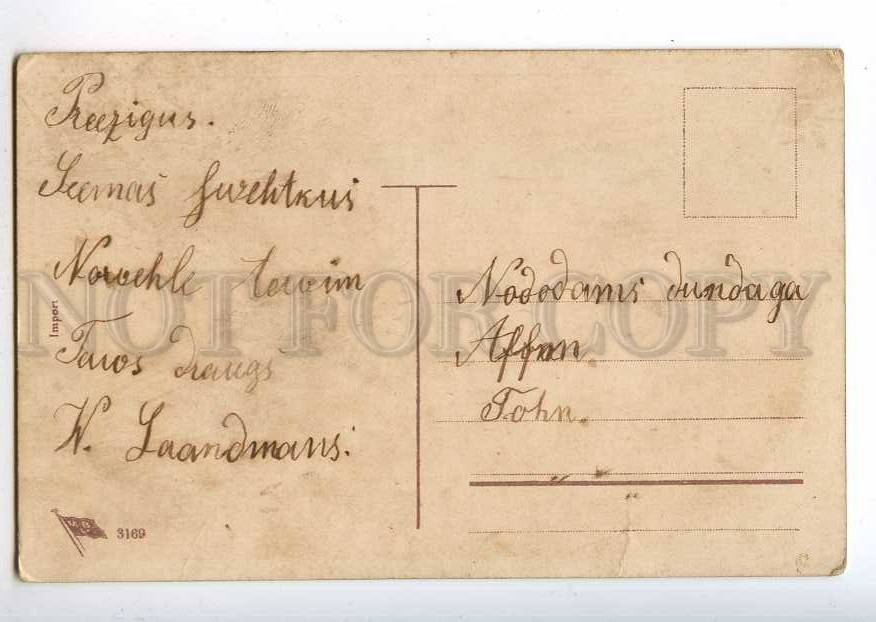 Preezigus.
Seemas swehtkus
Nowehle tewim
Taws draugs
W. Laandmans.
Nododams dundaga
Affen
Tohn.
Import
3169
NOT FOR COPY